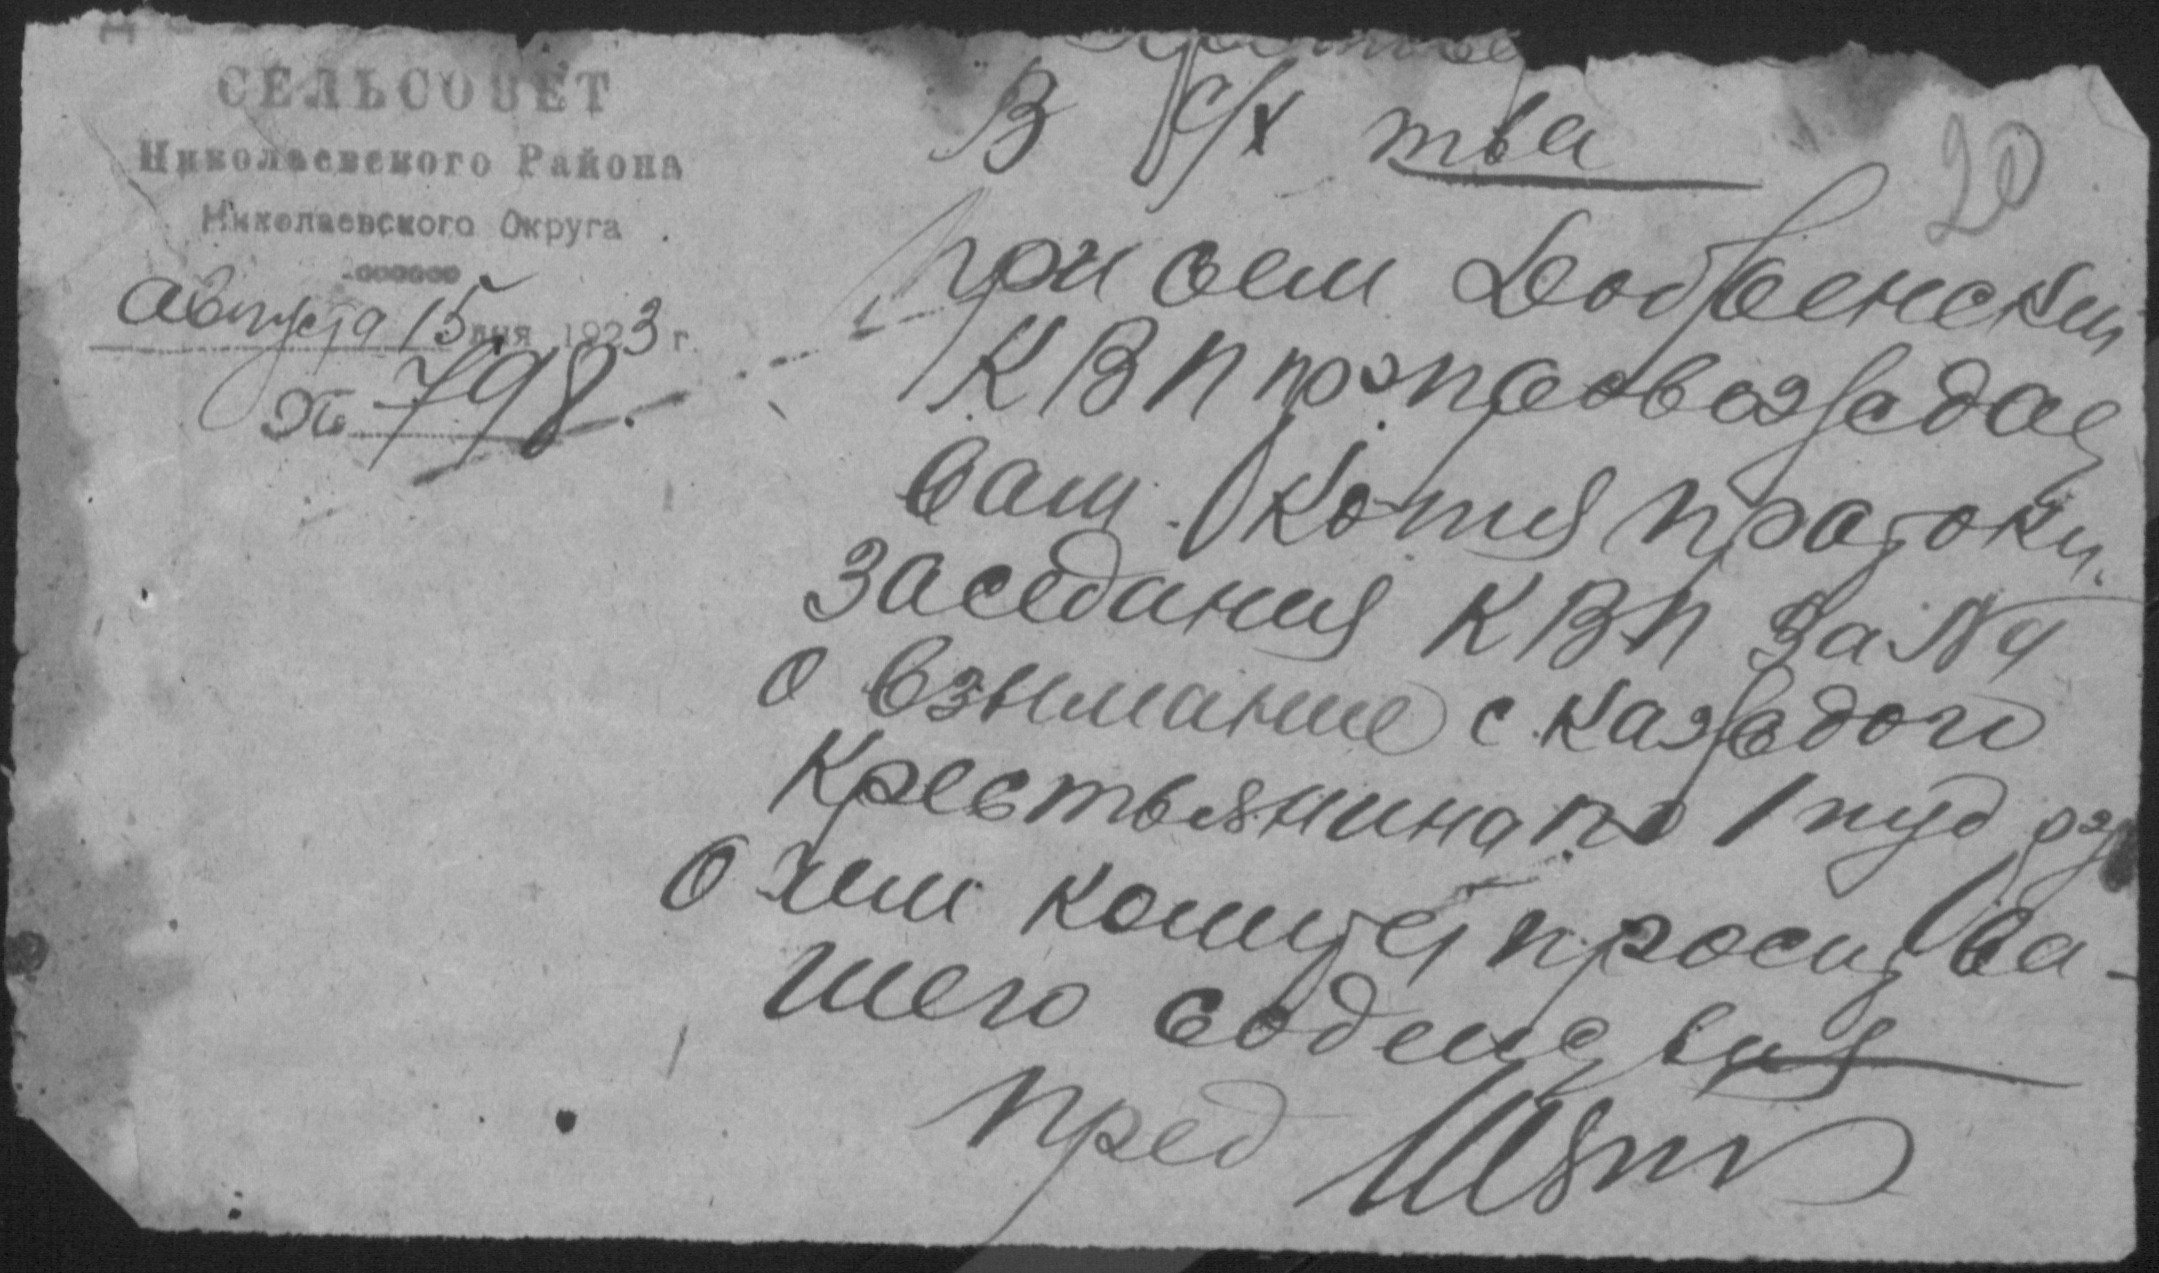 СЕЛЬСОВЕТ
Николаевского Района
Николаевского Округа
Августа 15 дня 1923 г.
№ 798.
20
В с/х тва
При сем Добренский
КВП препровождае
вам копия протоки.
Заседания КВП за №4
о взымание с каждого
крестьянина по 1 пуд
о чем комитет просит ва-
шего содействия
пред